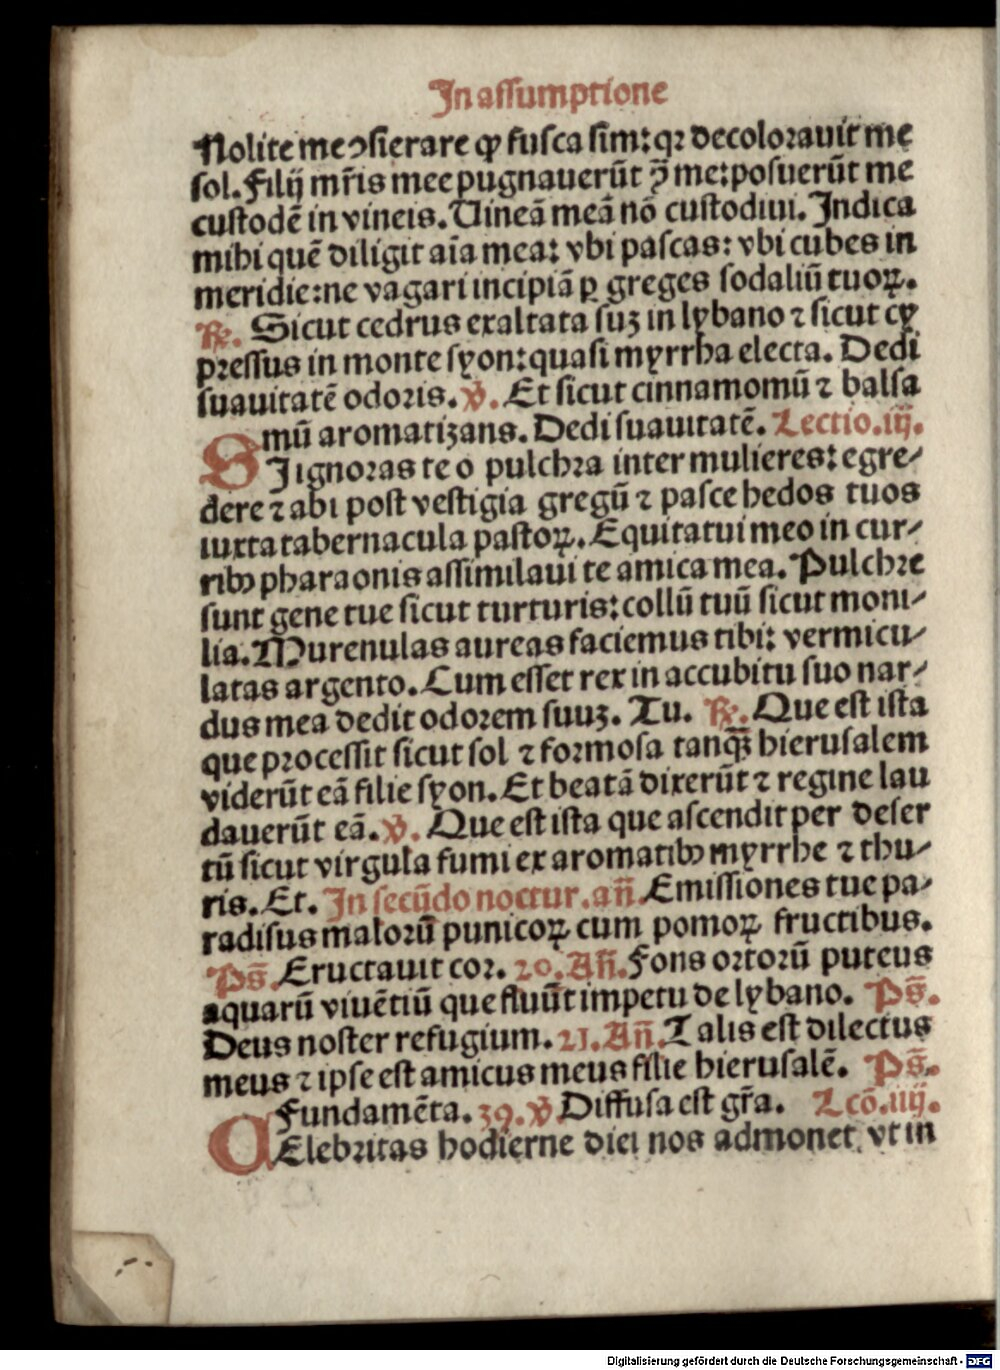 In assumptione
Nolite me ↄsierare ꝙ fusca sim: qꝛ decolorauit me
sol. Filij mr̃is mee pugnauerũt ↄ̃ me: posuerũt me
custodẽ in vineis. Uineã meã nõ custodiui. Indica
mihi quẽ diligit aĩa mea: vbi pascas: vbi cubes in
meridie: ne vagari incipiã ꝑ greges sodaliũ tuoꝝ.
℟. Sicut cedrus exaltata suꝫ in lybano ⁊ sicut cy
pressus in monte syon: quasi myrrha electa. Dedi
suauitatẽ odoris. ℣. Et sicut cinnamomũ ⁊ balsa
mũ aromatizans. Dedi suauitatẽ. Lectio. iij.
SI ignoras te o pulchra inter mulieres: egre-
dere ⁊ abi post vestigia gregũ ⁊ pasce hedos tuos
iuxta tabernacula pastoꝝ. Equitatui meo in cur-
ribꝰ pharaonis assimilaui te amica mea. Pulchre
sunt gene tue sicut turturis: collũ tuũ sicut moni-
lia. Murenulas aureas faciemus tibi: vermicu-
latas argento. Cum esset rex in accubitu suo nar-
dus mea dedit odorem suuꝫ. Tu. ℟. Que est ista
que processit sicut sol ⁊ formosa tanq̃ꝫ hierusalem
viderũt eã filie syon. Et beatã dixerũt ⁊ regine lau
dauerũt eã. ℣. Que est ista que ascendit per deser
tũ sicut virgula fumi ex aromatibꝰ myrrhe ⁊ thu-
ris. Et. In secũdo noctur. añ. Emissiones tue pa-
radisus malorũ punicoꝝ cum pomoꝝ fructibus.
Ps̃. Eructauit cor. 20. Añ. Fons ortorũ puteus
aquarũ viuẽtiũ que fluũt impetu de lybano. Ps̃.
Deus noster refugium. 21. Añ. Talis est dilectus
meus ⁊ ipse est amicus meus filie hierusalẽ. Ps̃.
Fundamẽta. 39. ℣ Diffusa est gr̃a. Lcõ. iiij.
CElebritas hodierne diei nos admonet vt in
Digitalisierung gefördert durch die Deutsche Forschungsgemeinschaft - DFG